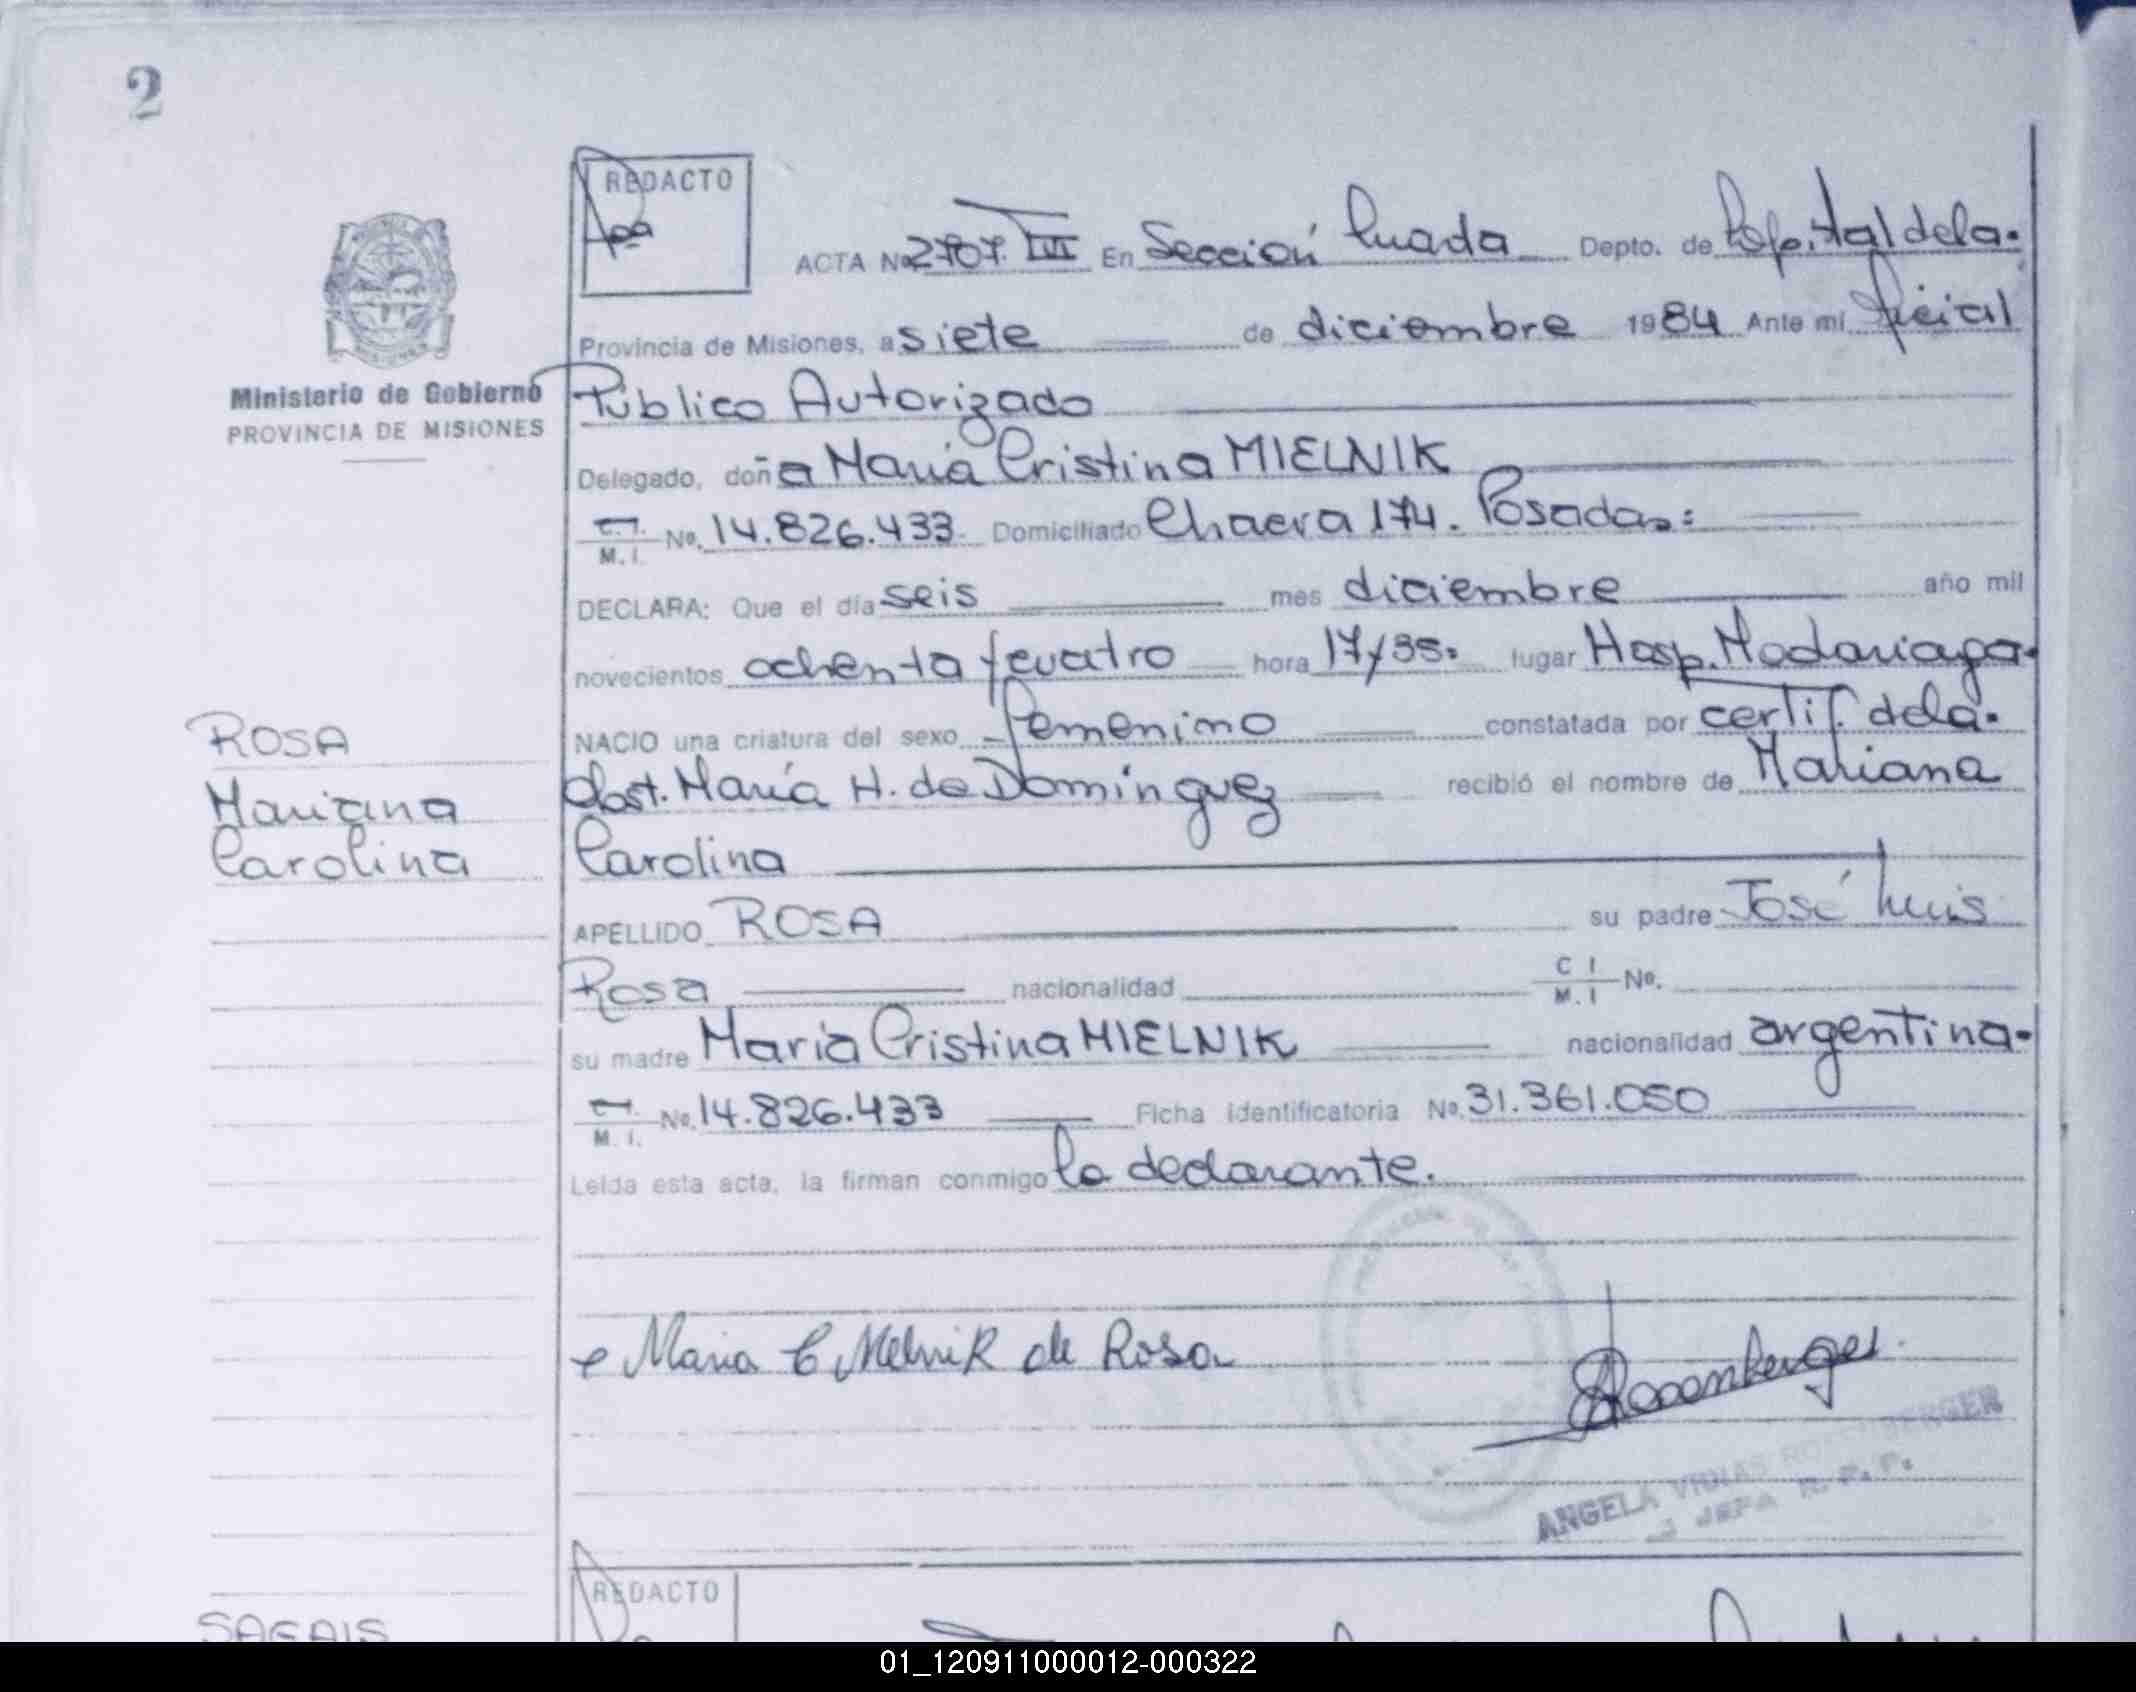 2
REDACTO
ACTA No 2707. T III En Sección Cuarta Depto. de Capital de la.
Provincia de Misiones, a siete de diciembre 1984 Ante mi Oficial
Ministerio de Gobierno
PROVINCIA DE MISIONES
Público Autorizado
Delegado, doña María Cristina MIELNIK
C.I. M. I. No. 14.826.433. Domiciliado Chacra 174. Posadas:
DECLARA: Que el día seis mes diciembre año mil
novecientos ochenta y cuatro hora 17/35. lugar Hosp. Madariaga.
ROSA
NACIO una criatura del sexo femenino constatada por certif. de la.
Mariana
Obst. María H. de Dominguez recibió el nombre de Mariana
Carolina
Carolina
APELLIDO ROSA su padre José Luis
Rosa nacionalidad C I M. I No.
su madre María Cristina MIELNIK nacionalidad argentina.
C.I. M. I. No. 14.826.433 Ficha identificatoria No. 31.361.050
Leida esta acta, la firman conmigo la declarante.
Maria C Mielnik de Rosa
Rosenberger
ANGELA VIDNAS ROSENBERGER
JEFA R. P. P.
REDACTO
01_120911000012-000322